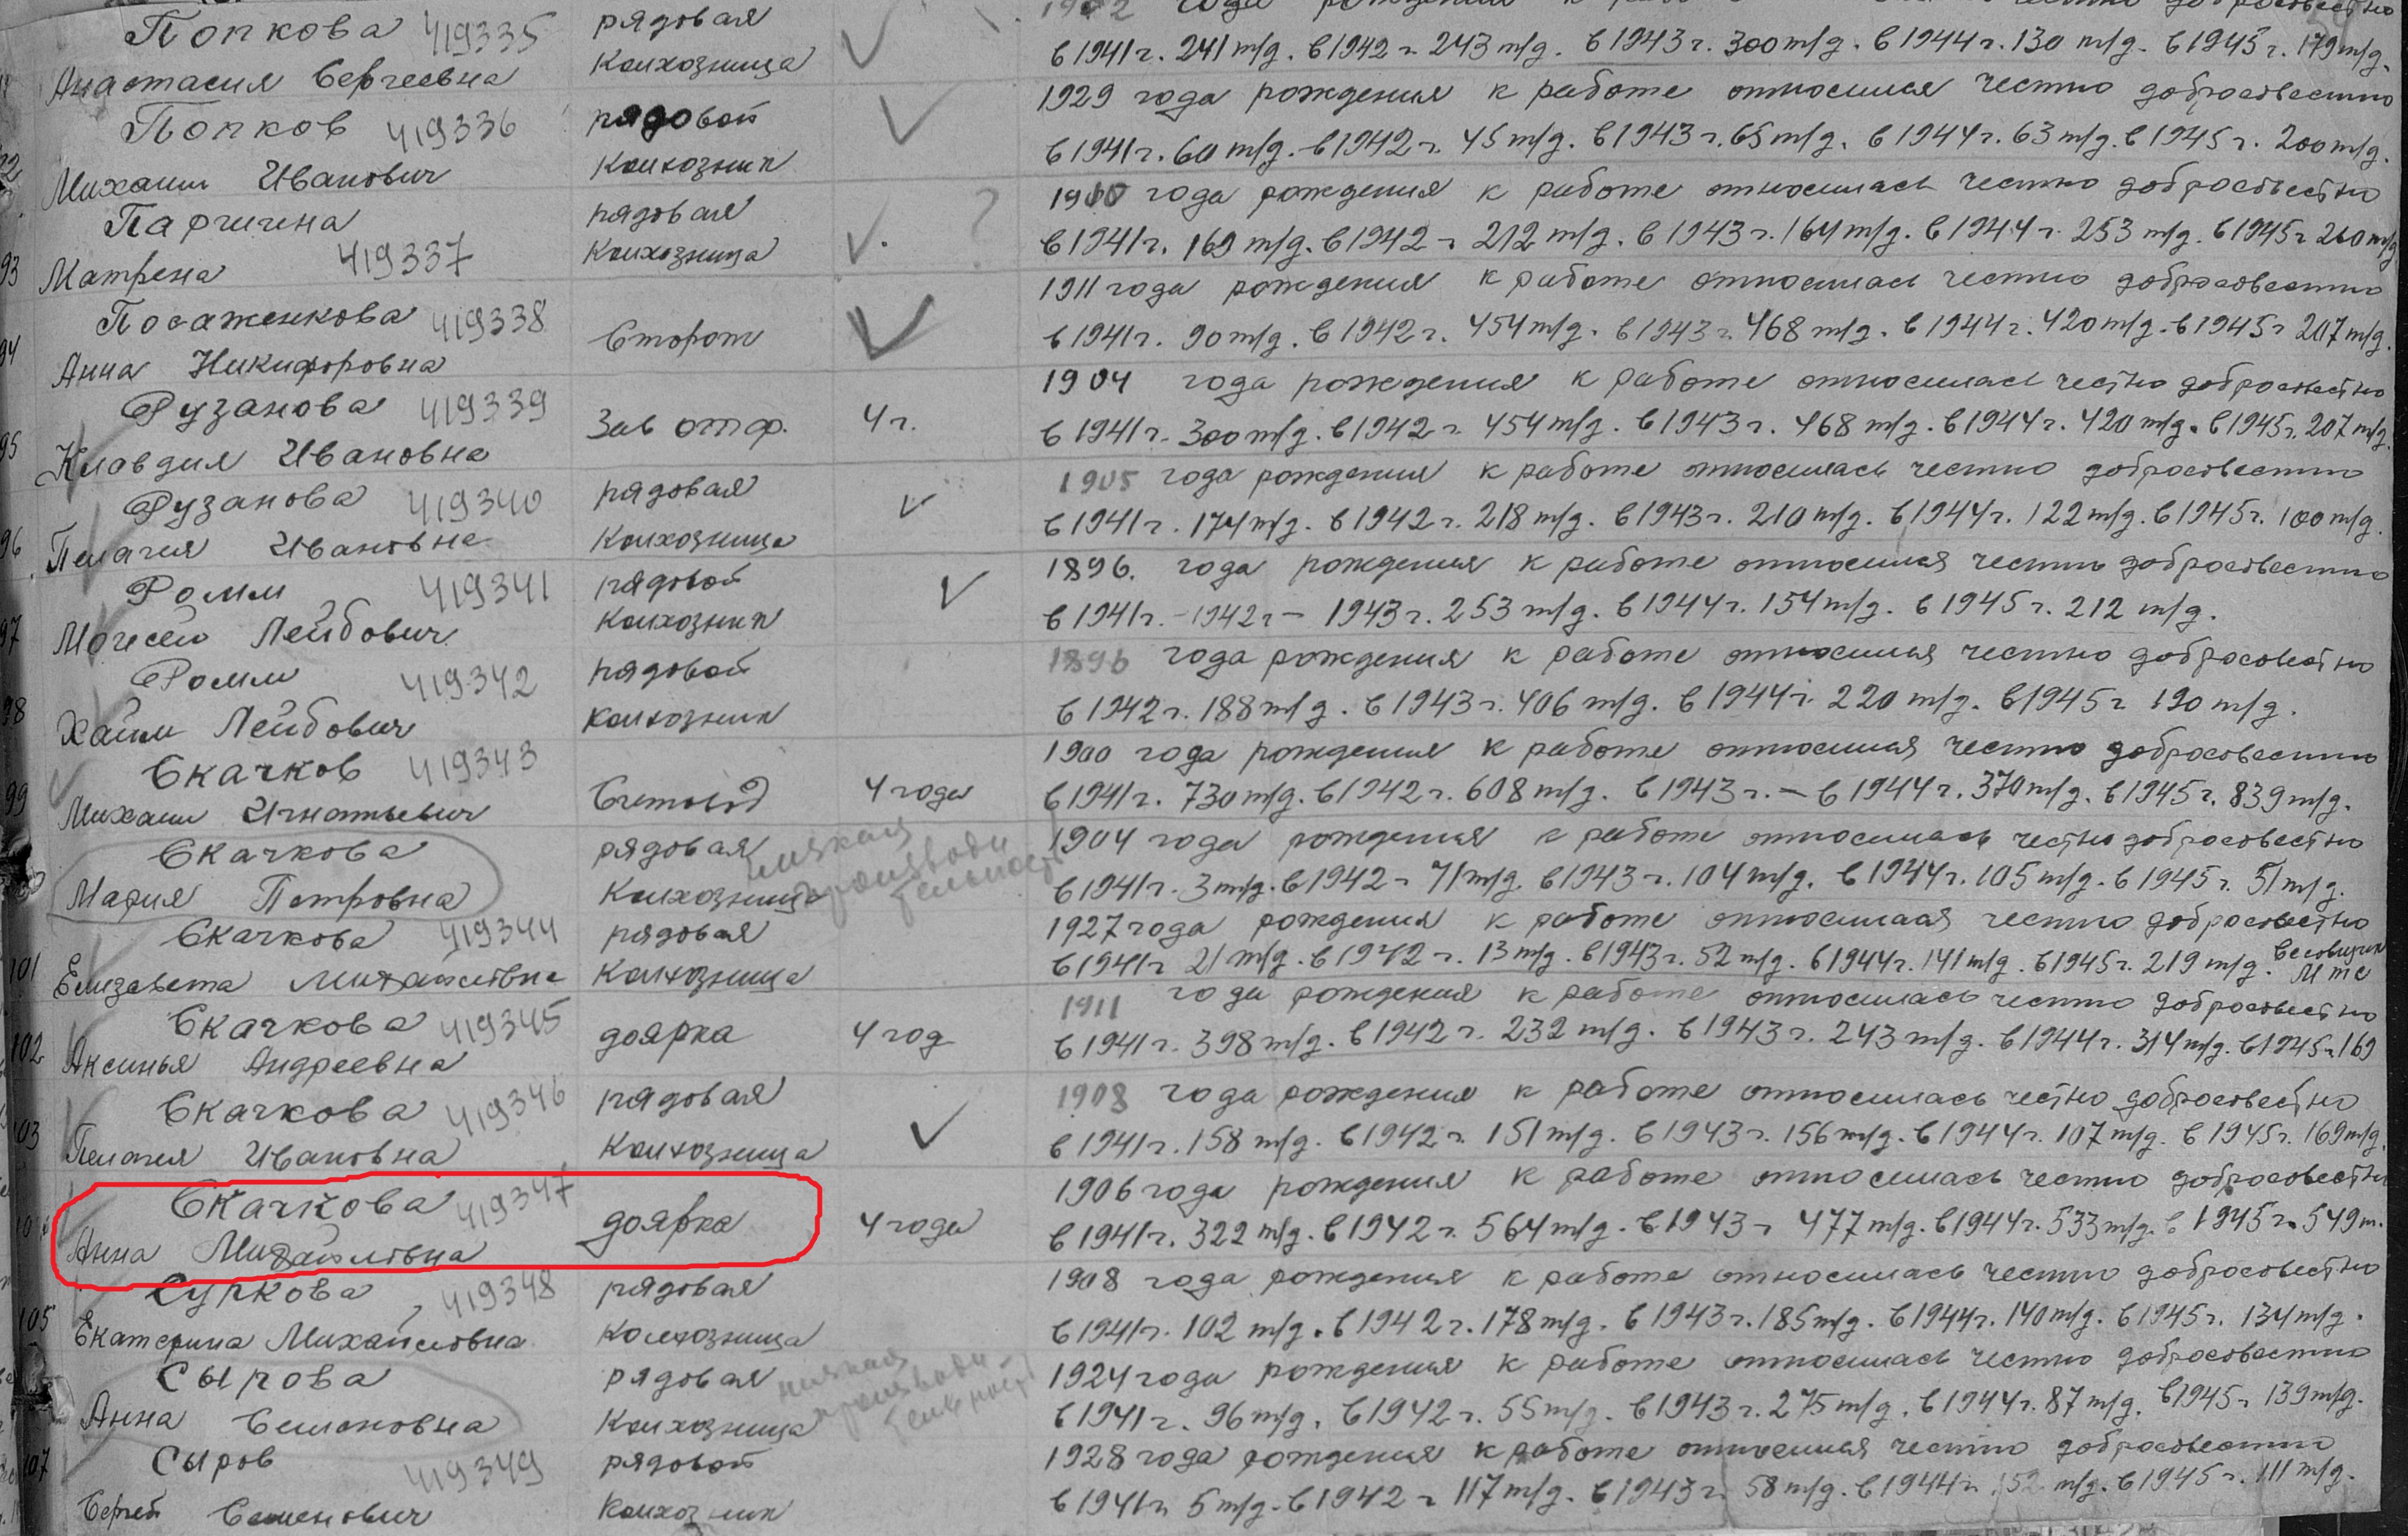 Попкова 419335 рядовая
Анастасия Сергеевна колхозница в 1941г. 241 т/д. в 1942 г. 243 т/д. в 1943 г. 300 т/д. в 1944 г. 130 т/д. в 1945 г. 179 т/д.
Попков 419336 рядовой 1929 года рождения к работе относился честно добросовестно
Михаил Иванович колхозник в 1941г. 60 т/д. в 1942 г. 45 т/д. в 1943 г. 65 т/д. в 1944 г. 63 т/д. в 1945 г. 200 т/д.
Паргина рядовая ? года рождения к работе относилась честно добросовестно
93 Матрена 419337 колхозница в 1941г. 169 т/д. в 1942 г. 212 т/д. в 1943 г. 164 т/д. в 1944 г. 253 т/д. в 1945 г. 260 т/д
Посаженкова 419338 Сторож 1911 года рождения к работе относилась честно добросовестно
94 Анна Никифоровна в 1941г. 90 т/д. в 1942 г. 454 т/д. в 1943 г. 468 т/д. в 1944 г. 420 т/д. в 1945 г. 207 т/д.
Рузанова 419339 Зав отф. 4 г. 1904 года рождения к работе относилась честно добросовестно
95 Клавдия Ивановна в 1941г. 300 т/д. в 1942 г. 454 т/д. в 1943 г. 468 т/д. в 1944 г. 420 т/д. в 1945 г. 207 т/д.
Рузанова 419340 рядовая 1905 года рождения к работе относилась честно добросовестно
96 Пелагия Ивановна колхозница в 1941г. 174 т/д. в 1942 г. 218 т/д. в 1943 г. 210 т/д. в 1944 г. 122 т/д. в 1945 г. 100 т/д.
Ромм 419341 рядовой 1896. года рождения к работе относился честно добросовестно
97 Мойсей Лейбович колхозник в 1941г. - 1942 г - 1943 г. 253 т/д. в 1944 г. 154 т/д. в 1945 г. 212 т/д.
Ромм 419342 рядовой 1896 года рождения к работе относился честно добросовестно
98 Хаим Лейбович колхозник в 1942 г. 188 т/д. в 1943 г. 406 т/д. в 1944 г. 220 т/д. в 1945 г. 190 т/д.
Скачков 419343 Счетовод 4 года 1900 года рождения к работе относился честно добросовестно
99 Михаил Игнатьевич в 1941г. 730 т/д. в 1942 г. 608 т/д. в 1943 г. - в 1944 г. 370 т/д. в 1945 г. 839 т/д.
Скачкова рядовая низкая 1904 года рождения к работе относилась честно добросовестно
Мария Петровна колхозница производительность в 1941г. 3 т/д. в 1942 г 71 т/д. в 1943 г. 104 т/д. в 1944 г. 105 т/д. в 1945 г. 51 т/д.
Скачкова 419344 рядовая 1927 года рождения к работе относилась честно добросовестно
101 Елизавета Михайловна колхозница в 1941г 21 т/д. в 1942 г. 13 т/д. в 1943 г. 52 т/д. в 1944 г. 141 т/д. в 1945 г. 219 т/д. весовщик мтс
Скачкова 419345 доярка 4 год 1911 года рождения к работе относилась честно добросовестно
102 Аксинья Андреевна в 1941г. 398 т/д. в 1942 г. 232 т/д. в 1943 г. 243 т/д. в 1944 г. 314 т/д. в 1945 г. 169
Скачкова 419346 рядовая 1908 года рождения к работе относилась честно добросовестно
103 Пелагия Ивановна колхозница в 1941г. 158 т/д. в 1942 г. 151 т/д. в 1943 г. 156 т/д. в 1944 г. 107 т/д. в 1945 г. 169 т/д.
Скачкова 419347 доярка 4 года 1906 года рождения к работе относилась честно добросовестно
Анна Михайловна в 1941г. 322 т/д. в 1942 г. 564 т/д. в 1943 г 477 т/д. в 1944 г. 533 т/д. в 1945 г. 549 т.
Суркова 419348 рядовая 1908 года рождения к работе относилась честно добросовестно
105 Екатерина Михайловна колхозница в 1941г. 102 т/д. в 1942 г. 178 т/д. в 1943 г. 185 т/д. в 1944 г. 140 т/д. в 1945 г. 134 т/д.
Сырова рядовая низкая 1924 года рождения к работе относилась честно добросовестно
Анна Семеновна колхозница производительность в 1941г. 96 т/д. в 1942 г. 55 т/д. в 1943 г. 275 т/д. в 1944 г. 87 т/д. в 1945 г. 139 т/д.
107 Сыров 419349 рядовой 1928 года рождения к работе относился честно добросовестно
Сергей Семенович колхозник в 1941г. 5 т/д. в 1942 г 117 т/д. в 1943 г. 58 т/д. в 1944 г. 152 т/д. в 1945 г. 111 т/д.